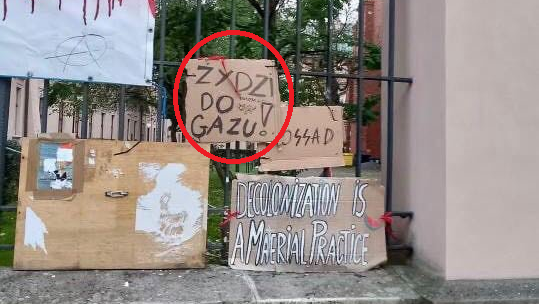 ŻYDZI
DO
GAZU!
OSSAD
DECOLONIZATION IS
A MATERIAL PRACTICE